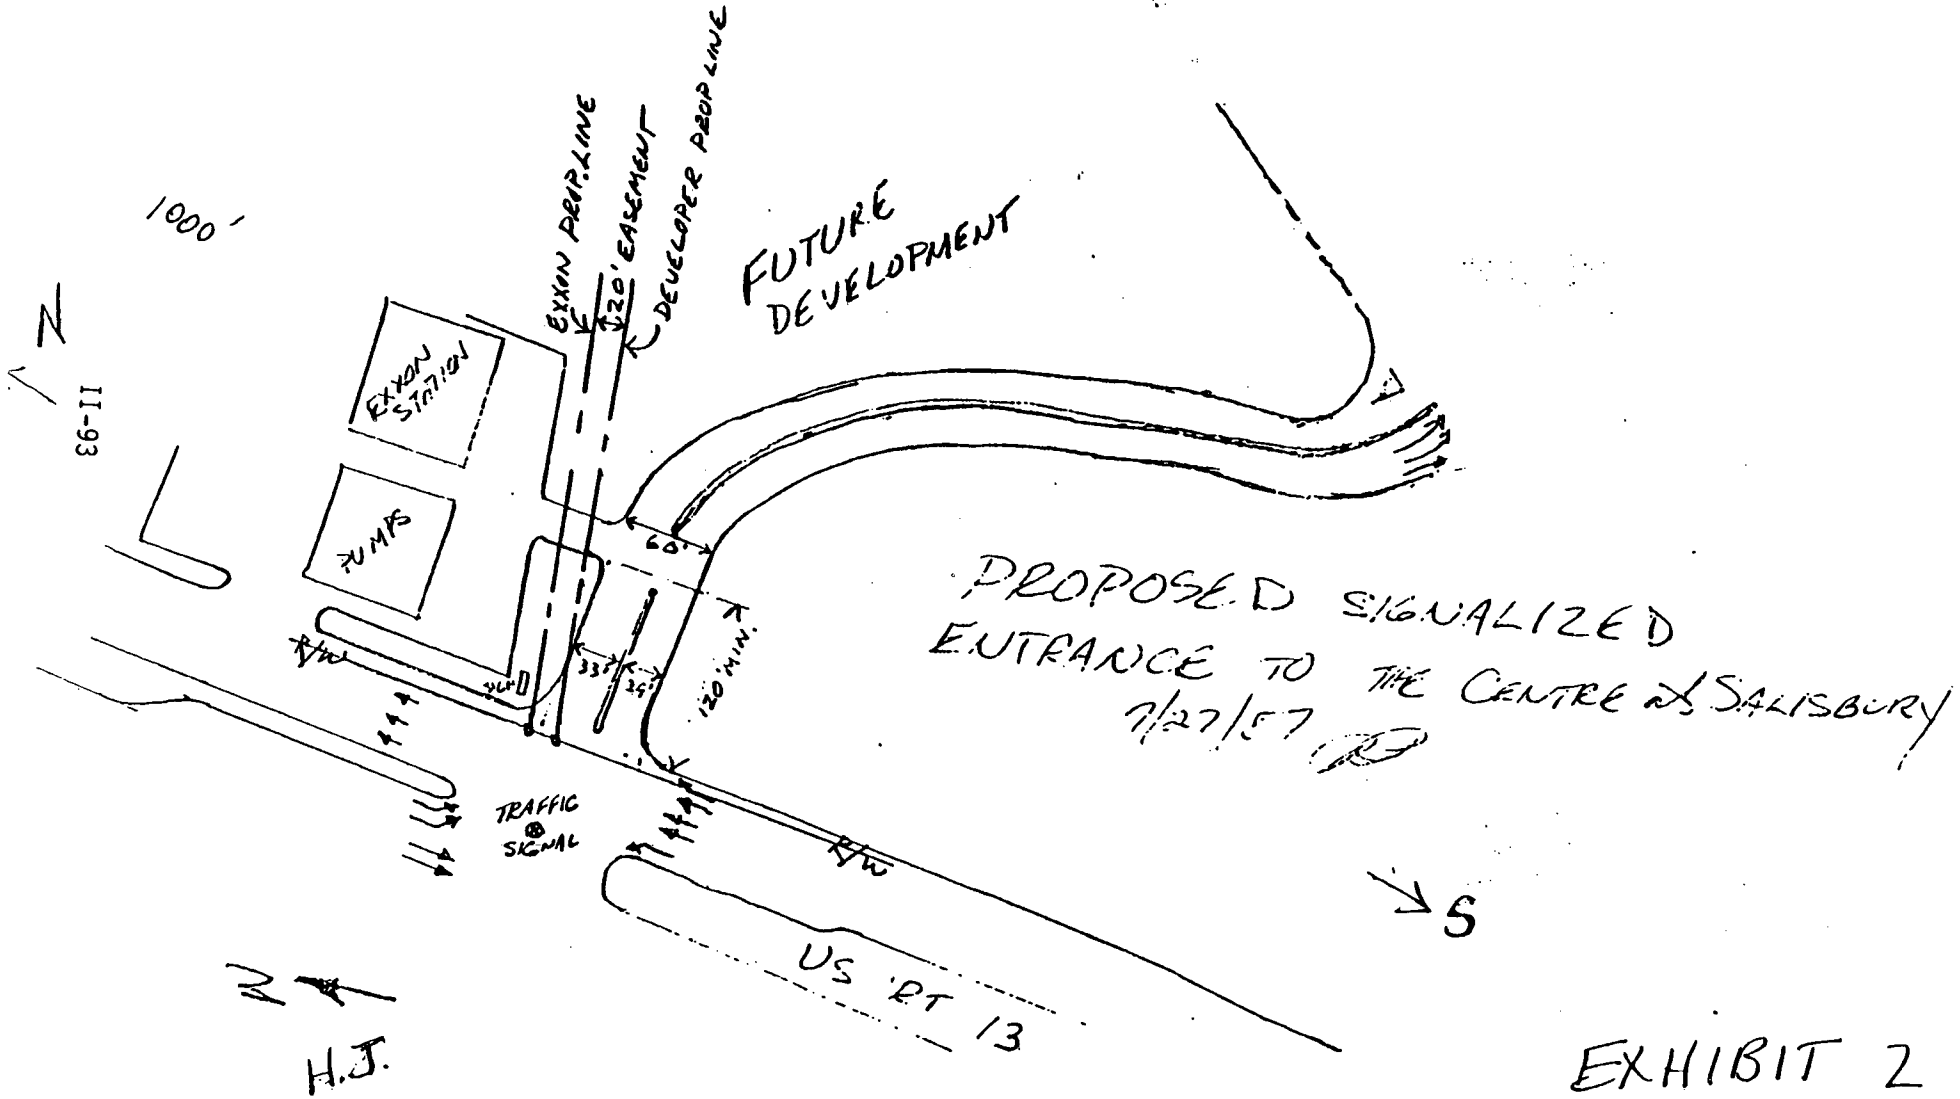 EXXON PROP. LINE
20' EASEMENT
DEVELOPER PROP LINE
1000'
N
II-93
FUTURE
DEVELOPMENT
EXXON
STATION
PUMPS
R/W
60'
33'
120' MIN.
PROPOSED SIGNALIZED
ENTRANCE TO THE CENTRE at SALISBURY
TRAFFIC
SIGNAL
R/W
US RT 13
S
N
H.J.
EXHIBIT 2